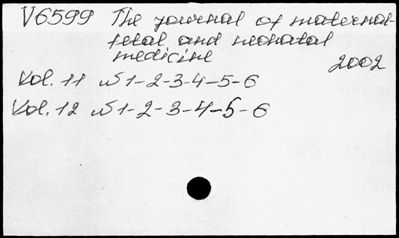 V6599 The journal of maternal-
fetal and neonatal
medicine
2002
Vol. 11 №1-2-3-4-5-6
Vol. 12 №1-2-3-4-5-6